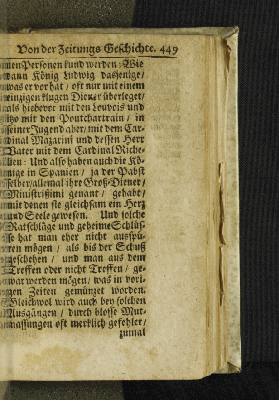 Von der Zeitungs Geschichte. 449
nenPersonen kund werden; Wie
dann König Ludwig dasjenige/
was er vorhat / oft nur mit einem
einzigen klugen Diener überleget/
als hiebevor mit den Louvois und
itzo mit den Pontchartrain / in
seiner Jugend aber/ mit dem Car-
dinal Mazarini und dessen Herr
Vater mit dem Cardinal Riche-
lieu: Und also haben auch die Kö-
nige in Spanien / ja der Pabst
selber/allemal ihre Groß-Diener/
Ministrissimi genant / gehabt/
mit denen sie gleichsam ein Herz
und Seele gewesen. Und solche
Ratschläge und geheime Schlüs-
se hat man eher nicht ausspü-
ren mögen / als bis der Schuß
geschehen / und man aus dem
Treffen oder nicht Treffen / ge-
warwerden mögen/ was in vori-
gen Zeiten gemünzet worden.
Gleichwol wird auch bey solchen
Ausgängen / durch blosse Mut-
massungen oft merklich gefehlet/
zumal